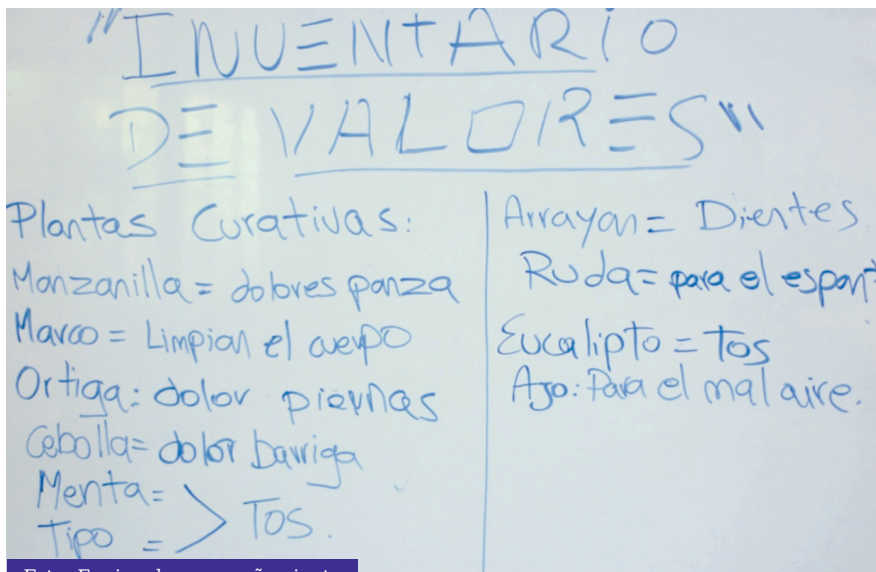 "INVENTARIO
DE VALORES"
Plantas Curativas:
Manzanilla = dolores panza
Marco = Limpian el cuerpo
Ortiga: dolor piernas
Cebolla = dolor barriga
Menta =
Tipo = > Tos.
Arrayan = Dientes
Ruda = para el espant
Eucalipto = Tos
Ajo: Para el mal aire.